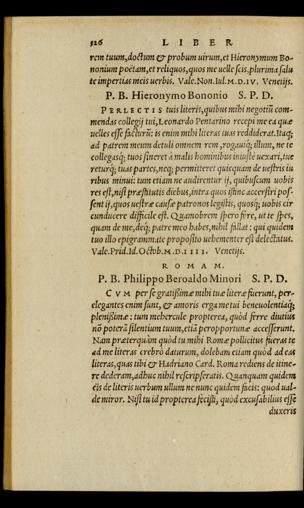 526 LIBER
rem tuum, doctum & probum uirum, et Hieronymum Bo-
nonium poëtam, et reliquos, quos me uelle scis, plurima salu
te impertias meis uerbis. Vale. Non. Iul. M. D. IV. Venetijs.
P. B. Hieronymo Bononio S. P. D.
PERLECTIS tuis literis, quibus mihi negotiũ com-
mendas collegij tui, Leonardo Pentarino recepi me ea quæ
uelles esse facturũ: is enim mihi literas tuas reddiderat. Itaq;
ad patrem meum detuli omnem rem, rogauiq́; illum, ne te
collegasq́; tuos sineret à malis hominibus iniustè uexari, tue
returq́; tuas partes, neq; permitteret quicquam de uestris iu
ribus minui: tum etiam ne audirentur ij, quibuscum uobis
res est, nisi præstitutis diebus, intra quos istinc accersiri pos-
sent ij, quos uestræ causæ patronos legistis, quosq́; uobis cir
cunducere difficile est. Quamobrem spero fore, ut te spes,
quam de me, deq́; patre meo habes, nihil fallat: qui quidem
tuo illo epigrammate proposito uehementer est delectatus.
Vale. Prid. Id. Octob. M. D. IIII. Venetijs.
ROMAM.
P. B. Philippo Beroaldo Minori S. P. D.
CVM per se gratissimæ mihi tuæ literæ fuerunt, per-
elegantes enim sunt, & amoris erga me tui beneuolentiæq́;
plenissimæ: tum mehercule propterea, quòd ferre diutius
nõ poterã silentium tuum, etiã peropportunæ accesserunt.
Nam præterquàm quòd tu mihi Romæ pollicitus fueras te
ad me literas crebrò daturum, dolebam etiam quòd ad eas
literas, quas tibi & Hadriano Card. Roma rediens de itine-
re dederam, adhuc nihil rescripseratis. Quanquam quidem
eis de literis uerbum ullum ne nunc quidem facis: quod ual-
de miror. Nisi tu id propterea fecisti, quòd excusabilius esse
duxeris